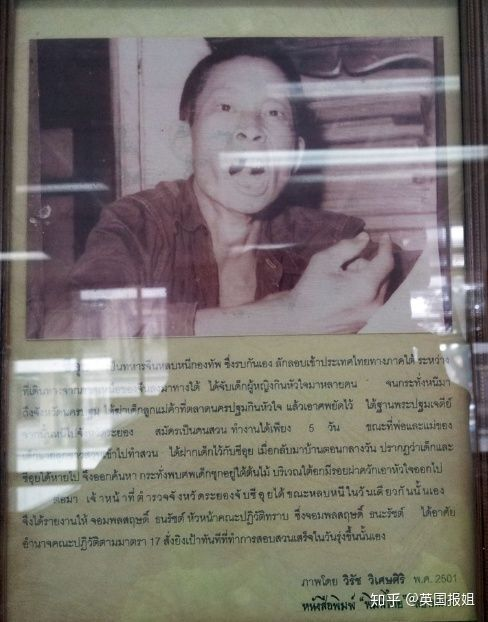 เป็นทหารจีนหลบหนีกองทัพ ซึ่งรบกันเอง ลักลอบเข้าประเทศไทยทางภาคใต้ ระหว่าง
ที่เดินทางจาก ลงมาทางใต้ ได้จับเด็กผู้หญิงกินหัวใจมาหลายคน จนกระทั่งหนีมา
ถึงจังหวัดนครปฐม ได้ฆ่าเด็กลูกแม่ค้าที่ตลาดนครปฐมกินหัวใจ แล้วเอาศพยัดไว้ ใต้ฐานพระปฐมเจดีย์
จากนั้นหนีไปจังหวัดระยอง สมัครเป็นคนสวน ทำงานได้เพียง 5 วัน ขณะที่พ่อและแม่ของ
เข้าไปทำสวน ได้ฝากเด็กไว้กับซีอุย เมื่อกลับมาบ้านตอนกลางวัน ปรากฏว่าเด็กและ
ซีอุยได้หายไป จึงออกค้นหา กระทั่งพบศพเด็กซุกอยู่ใต้ต้นไม้ บริเวณใต้อกมีรอยผ่าควักเอาหัวใจออกไป
ต่อมา เจ้าหน้าที่ตำรวจจังหวัดระยองจับซีอุยได้ขณะหลบหนีในวันเดียวกันนั้นเอง
จึงได้รายงานให้ จอมพลสฤษดิ์ ธนรัชต์ หัวหน้าคณะปฏิวัติทราบ ซึ่งจอมพลสฤษดิ์ ธนะรัชต์ ได้อาศัย
อำนาจคณะปฏิวัติตามมาตรา 17 สั่งยิงเป้าทันทีที่ทำการสอบสวนเสร็จในวันรุ่งขึ้นนั้นเอง
ภาพโดย วิรัช วิเศษศิริ พ.ศ. 2501
หนังสือพิมพ์
知乎 @英国报姐